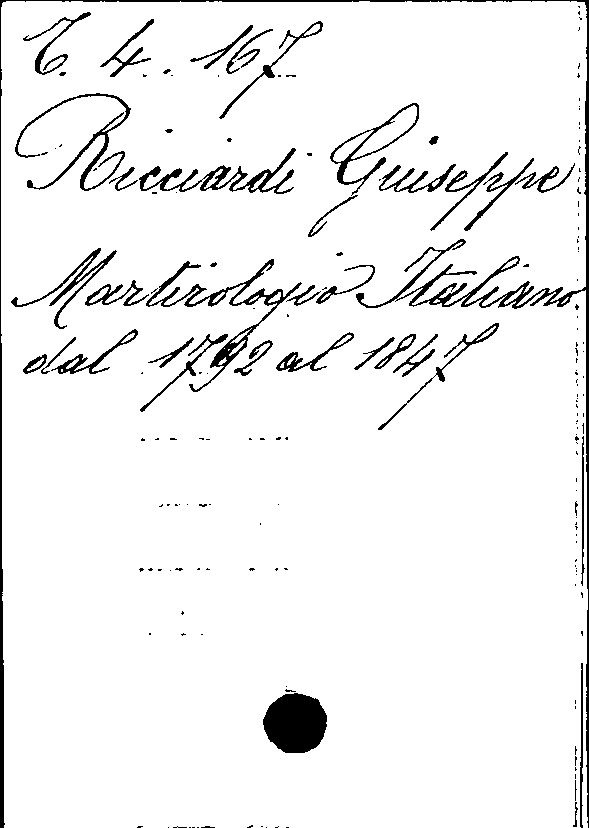 T. 4. 167
Ricciardi Giuseppe
Martirologio Italiano
dal 1792 al 1847